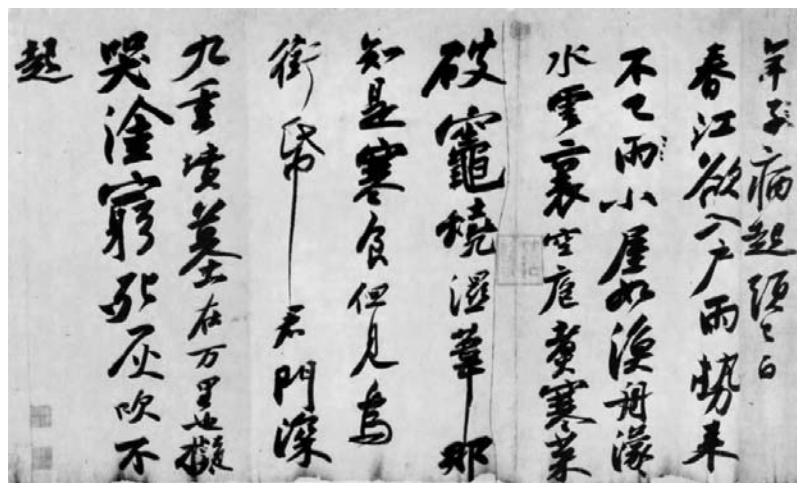 年子病起頭已白
春江欲入戶雨勢来
不已雨小屋如漁舟濛
水雲裏空庖煮寒菜
破竈燒濕葦那
知是寒食但見烏
銜帋君門深
九重墳墓在万里也擬
哭塗窮死灰吹不
起